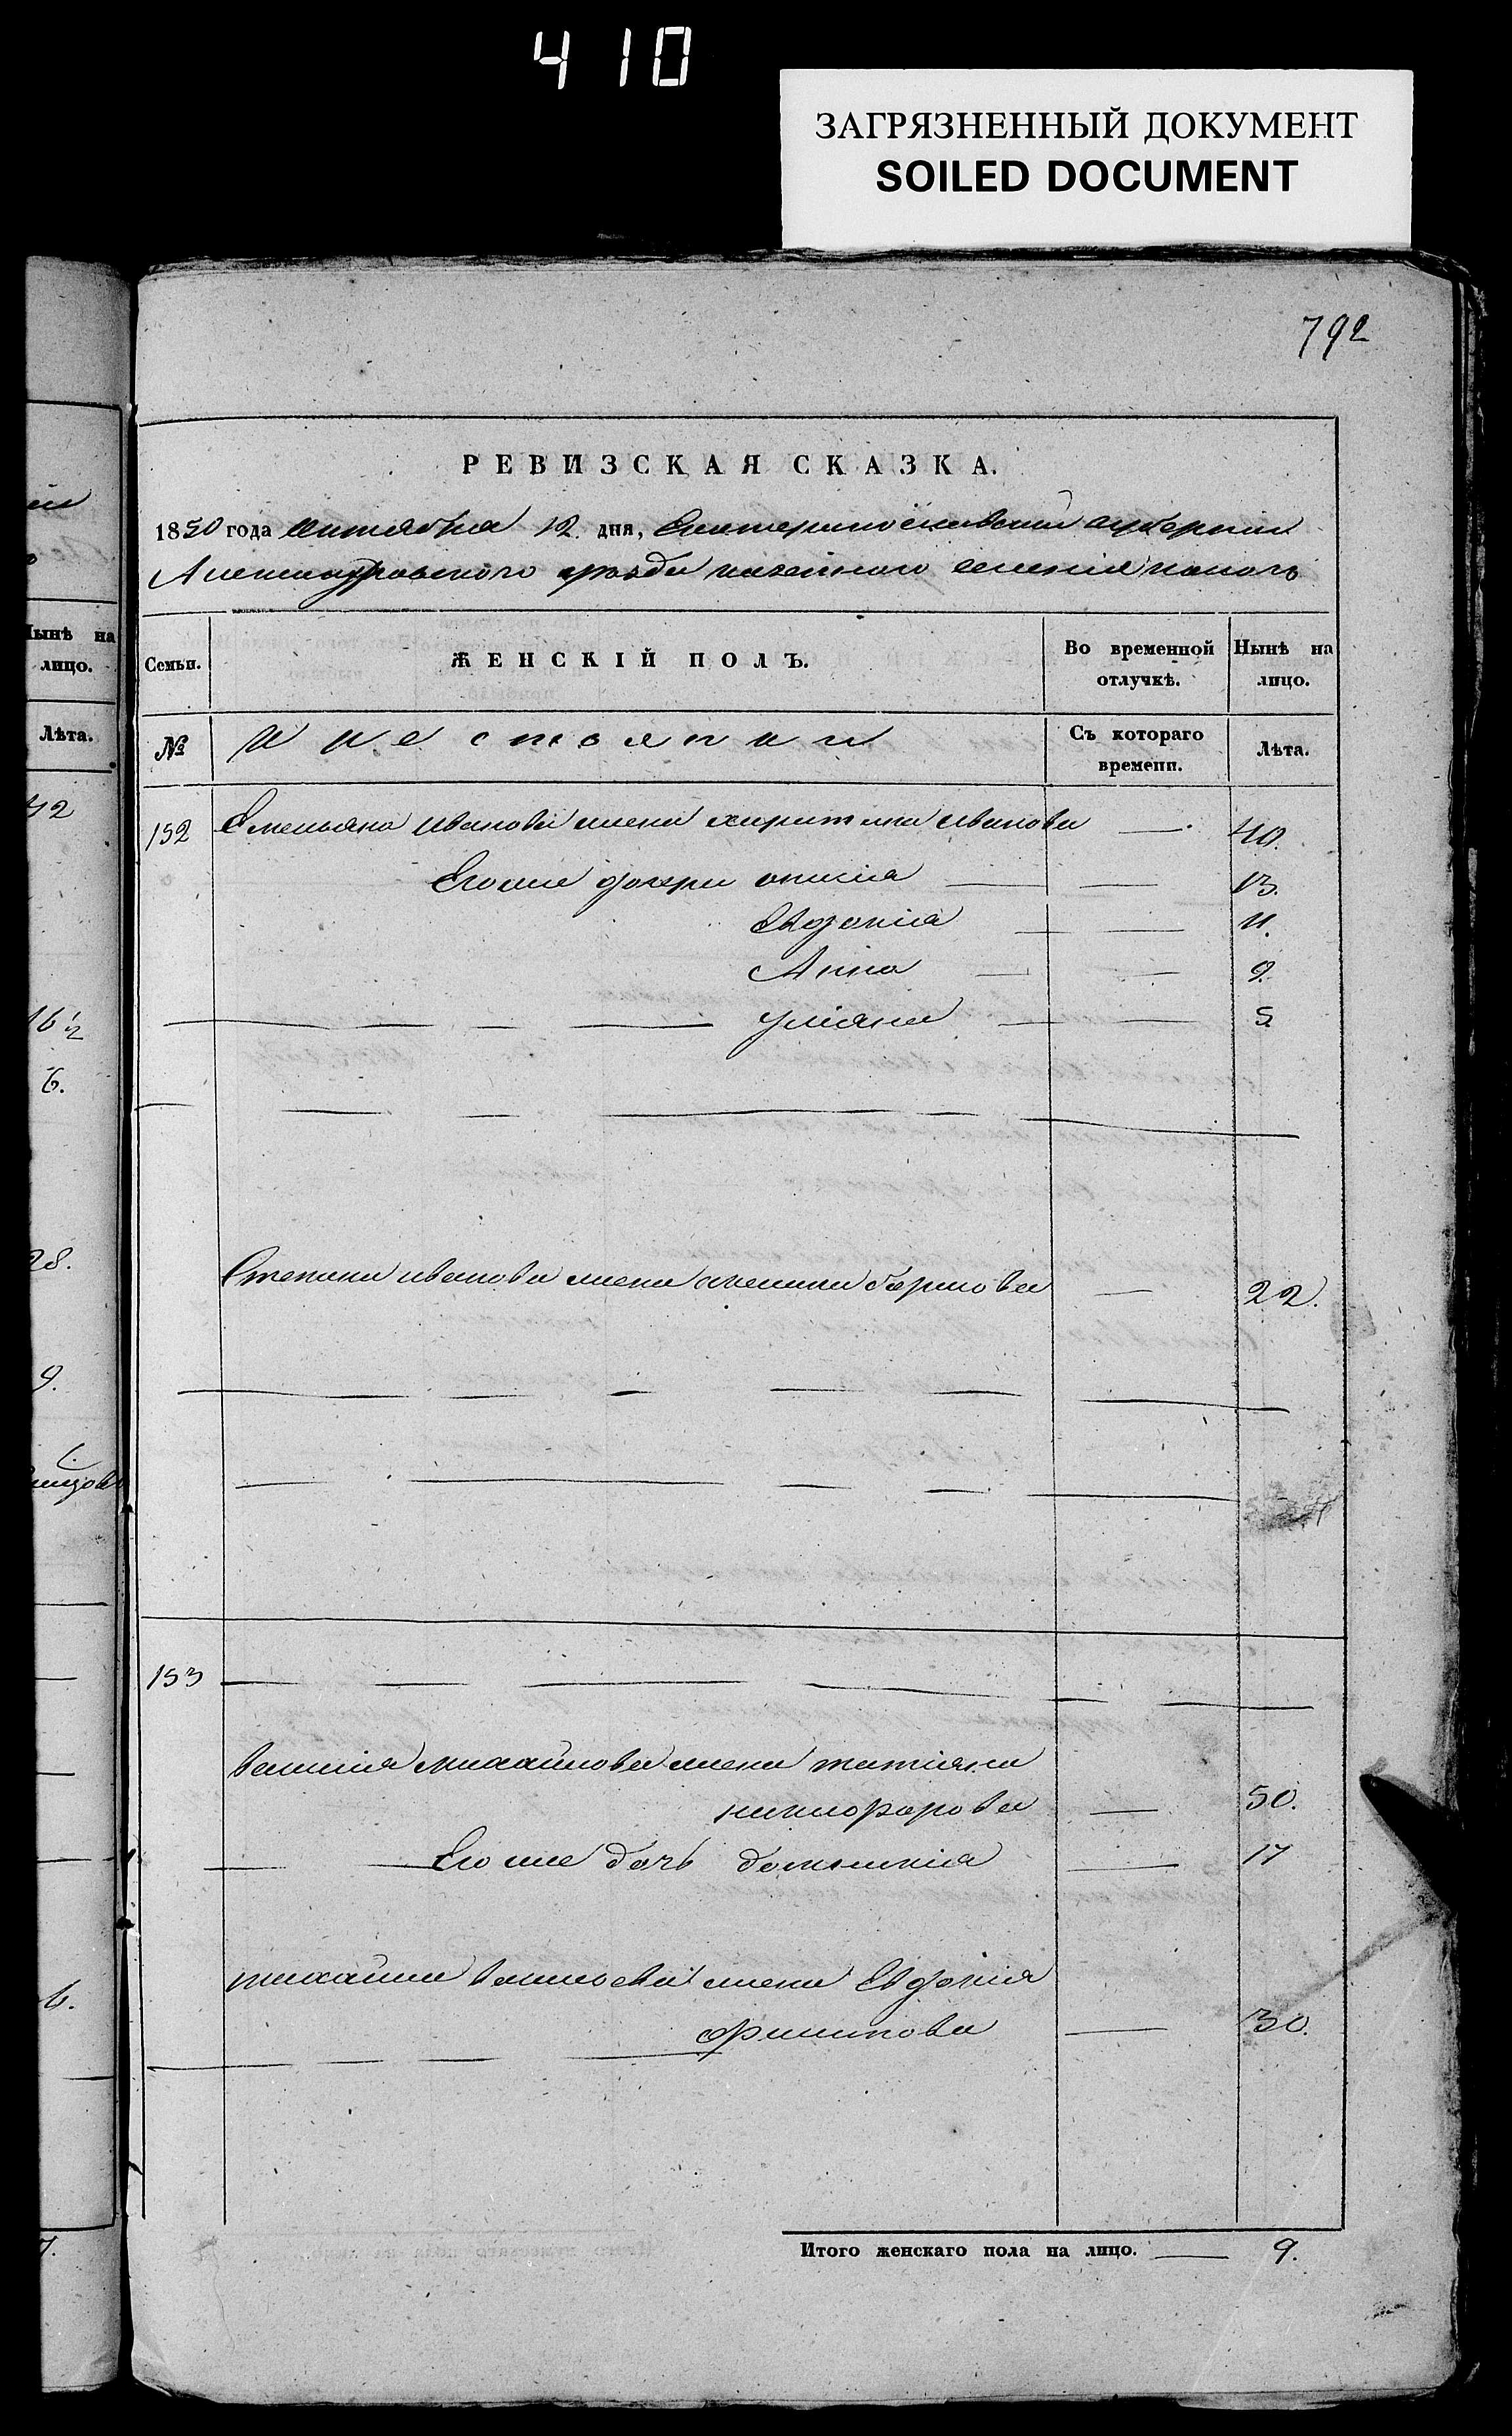 410
ЗАГРЯЗНЕННЫЙ ДОКУМЕНТ
SOILED DOCUMENT
792
РЕВИЗСКАЯ СКАЗКА.
1850 года октября 12 дня, Екатеринославской губернии
Александровского уезда казенного селения
Нынѣ на лицо.
Лѣта.
42
16 1/2
6.
28.
9.
6.
7.
Семьи. ЖЕНСКІЙ ПОЛЪ. Во временной отлучкѣ. Нынѣ на лицо.
№ Съ котораго времени. Лѣта.
152 Емельяна иванова жена харитина иванова 40.
Его же дочери 13.
Евдокия 11.
Анна 9.
улiяна 5.
Степана иванова жена 22.
153
василия михайлова жена татiяна
никифорова 50.
Его же дочь 17
михайла васильева жена Евдокiя
филипова 30.
Итого женскаго пола на лицо. 9.